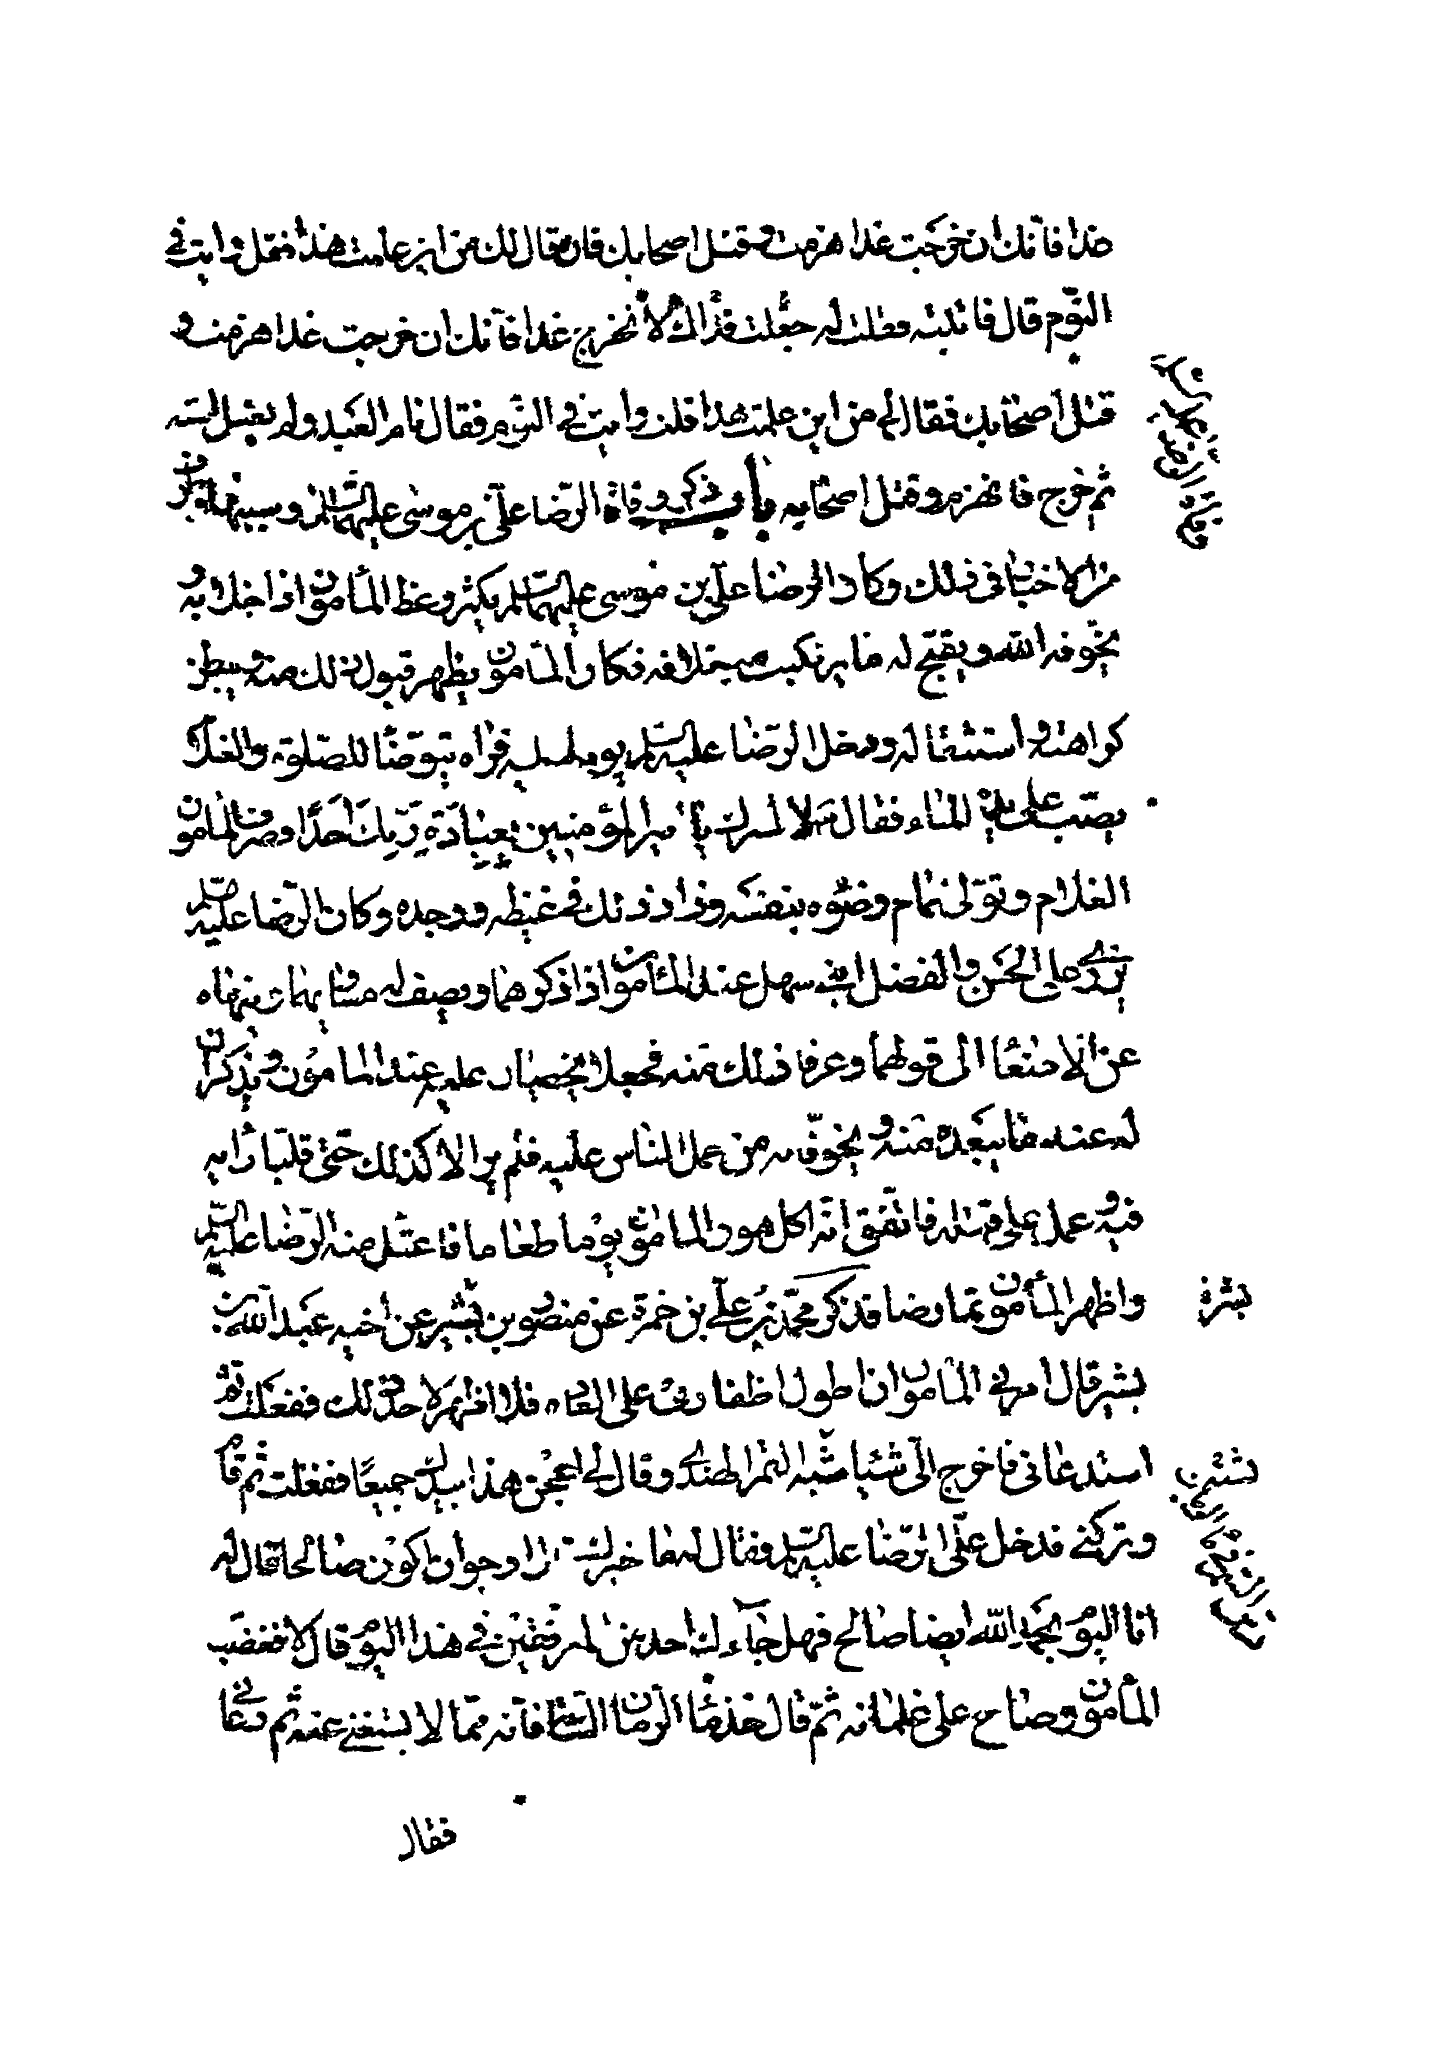 غدا فانك ان خرجت غدا هزمت وقتل اصحابك فان قال لك من اين علمت هذا فقل رايت في
النّوم قال فاتيته فقلت له جعلت فداك لا تخرج غدا فانك ان خرجت غدا هزمت و
قتل اصحابك فقال لي من اين علمت هذا قلت رايت في النوم فقال نام العبد ولم يغسل استه
ثم خرج فانهزم وقتل اصحابه باب ذكر وفاة الرّضا عليّ بن موسى عليهما السّلم وسببها وطرف
من الاخبار في ذلك وكان الرضا عليّ بن موسى عليهما السّلم يكثر وعظ المأمون اذا خلا به و
يخوفه الله ويقبّح له ما يرتكبه من خلافه فكان المأمون يظهر قبول ذلك منه ويبطن
كراهته واستثقاله ودخل الرّضا عليه السّلم يوما عليه فراه يتوضّأ للصّلوة والغلام
يصبّ على يده الماء فقال لا تشرك يا امير المؤمنين بعبادة ربّك احدًا وصرف المأمون
الغلام وتولى تمام وضوءه بنفسه وزاد ذلك في غيظه ووجده وكان الرّضا عليه السلم
يزري على الحسن والفضل ابني سهل عند المأمون اذا ذكرهما ويصف له مساويهما وينهاه
عن الاصغاء الى قولهما وعرفا ذلك منه فجعلا يحطبان عليه عند المامون ويذكران
له عنه ما يبعّده منه ويخوّفانه من حمل الناس عليه فلم يزالا كذلك حتى قلبا رأيه
فيه وعمل على قتله فاتفق انّه اكل هو والمامون يوما طعاما فاعتلّ منه الرّضا عليه السّلم
واظهر المأمون تمارضا فذكر محمّد بن عليّ بن حمزة عن منصور بن بشير عن اخيه عبد الله بن
بشير قال امرني المأمون ان اطول اظفاري على العادة فلا اظهر لاحد ذلك ففعلت ثم
استدعاني فاخرج الّى شيئا شبه التمر الهندي وقال لي اعجن هذا بيديك جميعًا ففعلت ثم قام
وتركني فدخل على الرّضا عليه السّلم فقال له ما خبرك قال ارجو ان اكون صالحا قال له
انا اليوم بحمد الله ايضا صالح فهل جاءك احد من المترفقين في هذا اليوم قال لا فغضب
المأمون وصاح على غلمانه ثمّ قال خذ ماء الرّمان السّاعة فانّه ممّا لا يستغنى عنه ثم دعاني
فقال